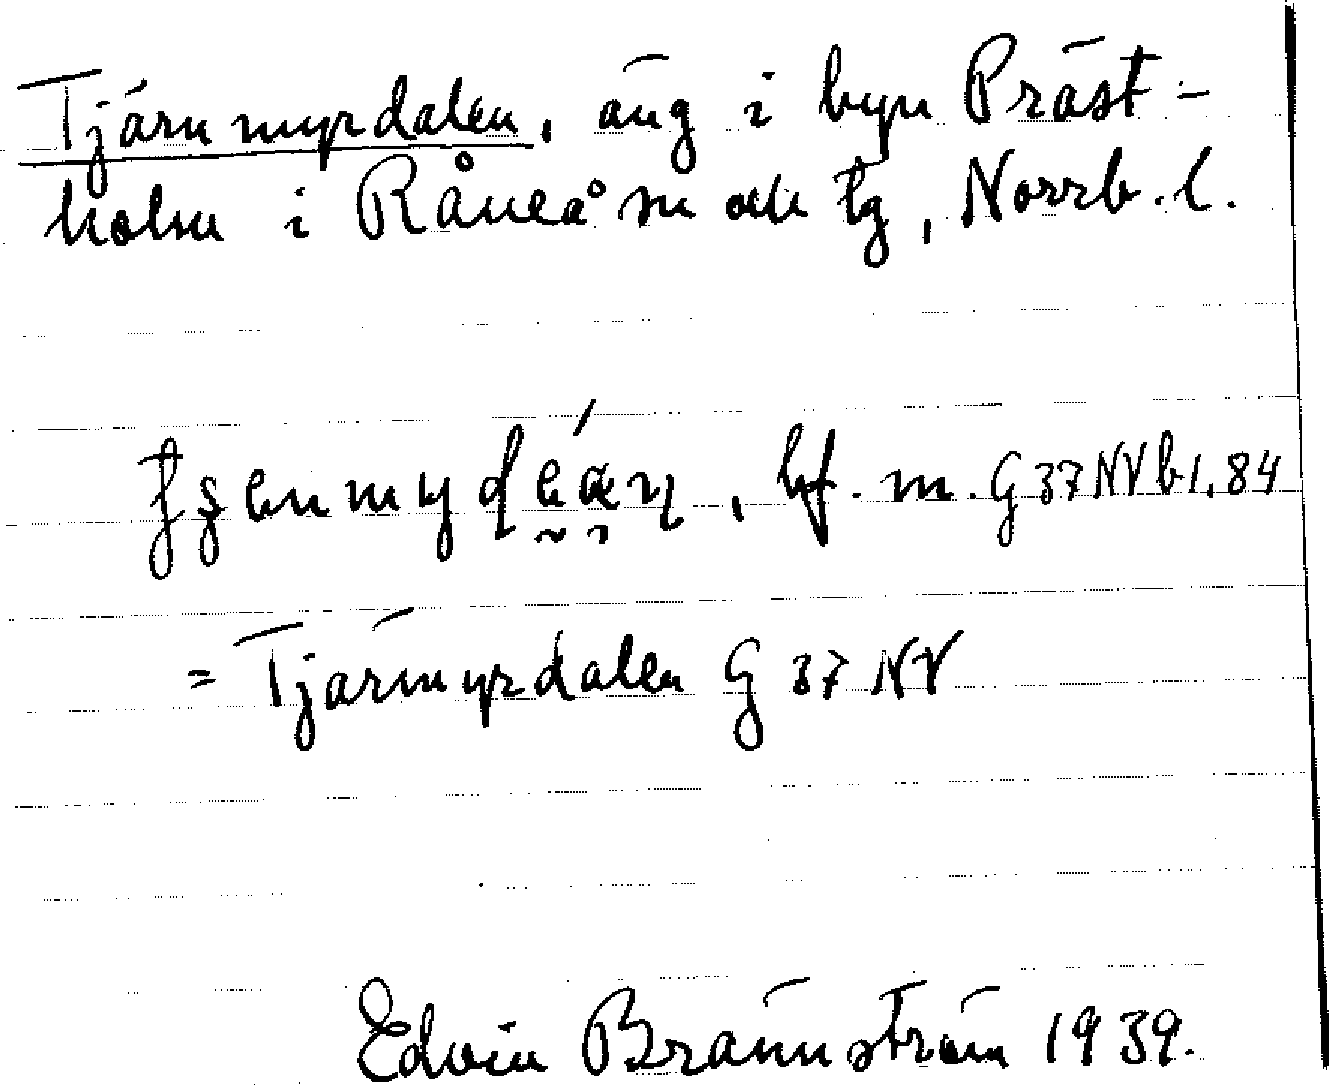 Tjärnmyrdalen, äng i byn Präst-
holm i Råneå sn och tg, Norrb. l.
, hf. m. G 37 NV b 1, 84
= Tjärmyrdalen G 37 NV
Edvin Brännström 1939.